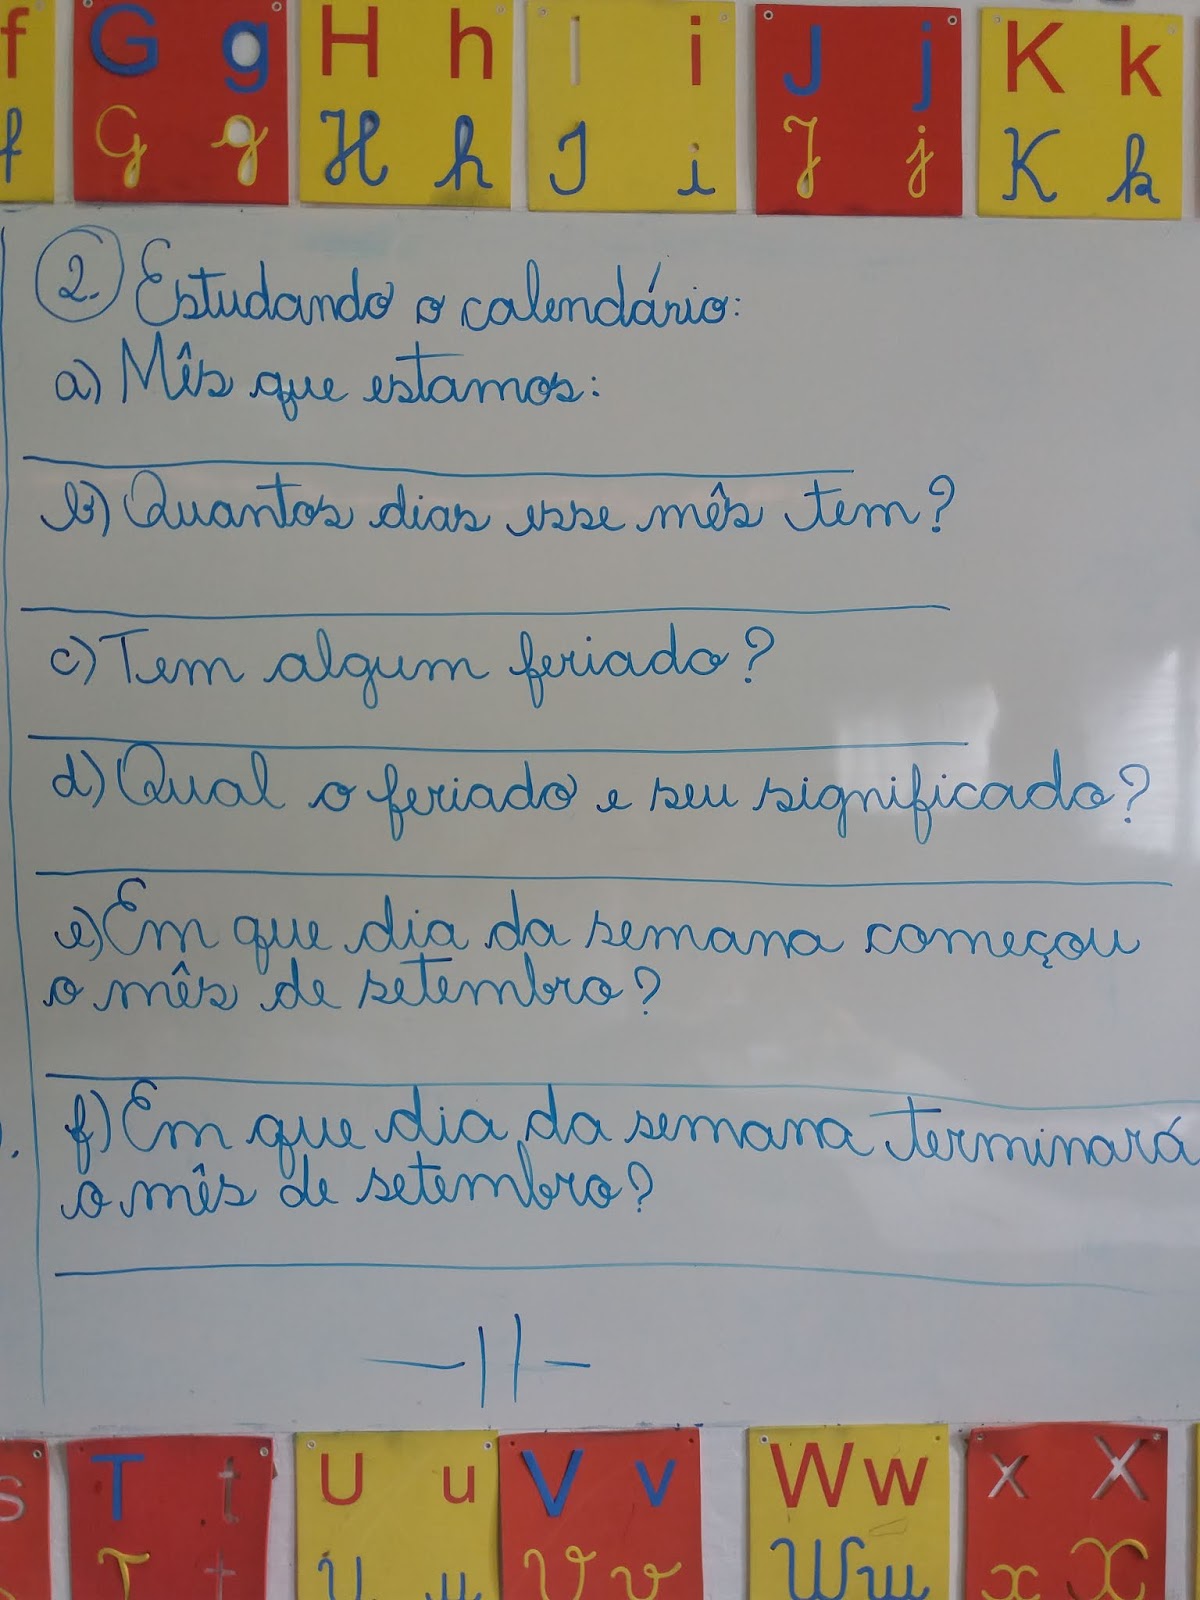 f G g H h I i J j K k
f G g H h I i J j K k
2. Estudando o calendário:
a) Mês que estamos:
b) Quantos dias esse mês tem?
c) Tem algum feriado?
d) Qual o feriado e seu significado?
e) Em que dia da semana começou
o mês de setembro?
f) Em que dia da semana terminará
o mês de setembro?
s T t U u V v W w x X
T t U u V v W w x X